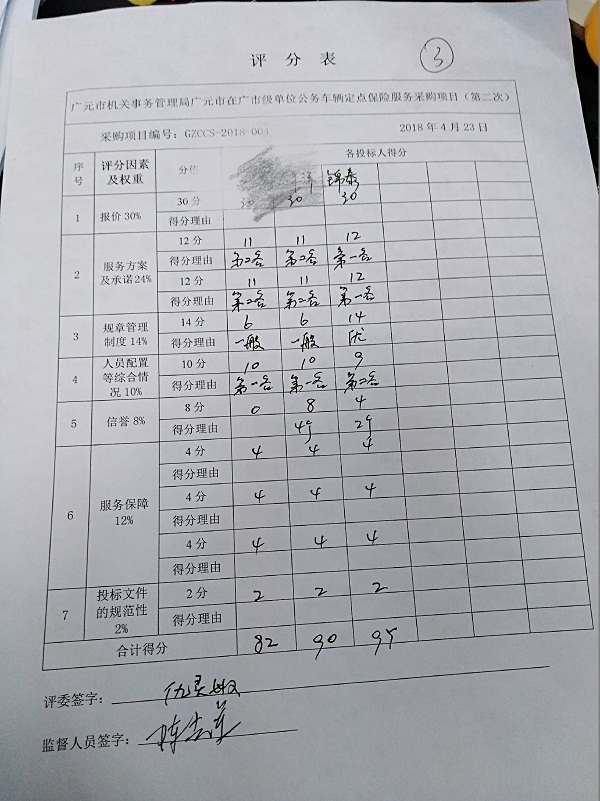 评 分 表
3
广元市机关事务管理局广元市在广市级单位公务车辆定点保险服务采购项目（第二次）
采购项目编号：GZCCS-2018-00 2018 年 4 月 23 日
序号 评分因素及权重 分值 各投标人得分
锦泰
1 报价 30% 30 分 30 30 30
得分理由
2 服务方案及承诺24% 12 分 11 11 12
得分理由 第二名 第二名 第一名
12 分 11 11 12
得分理由 第二名 第二名 第一名
3 规章管理制度 14% 14 分 6 6 14
得分理由 一般 一般 优
4 人员配置等综合情况 10% 10 分 10 10 9
得分理由 第一名 第一名 第二名
5 信誉 8% 8 分 0 8 4
得分理由 4个 2个
6 服务保障 12% 4 分 4 4 4
得分理由
4 分 4 4 4
得分理由
4 分 4 4 4
得分理由
7 投标文件的规范性 2% 2 分 2 2 2
得分理由
合计得分 82 90 95
评委签字：
监督人员签字：